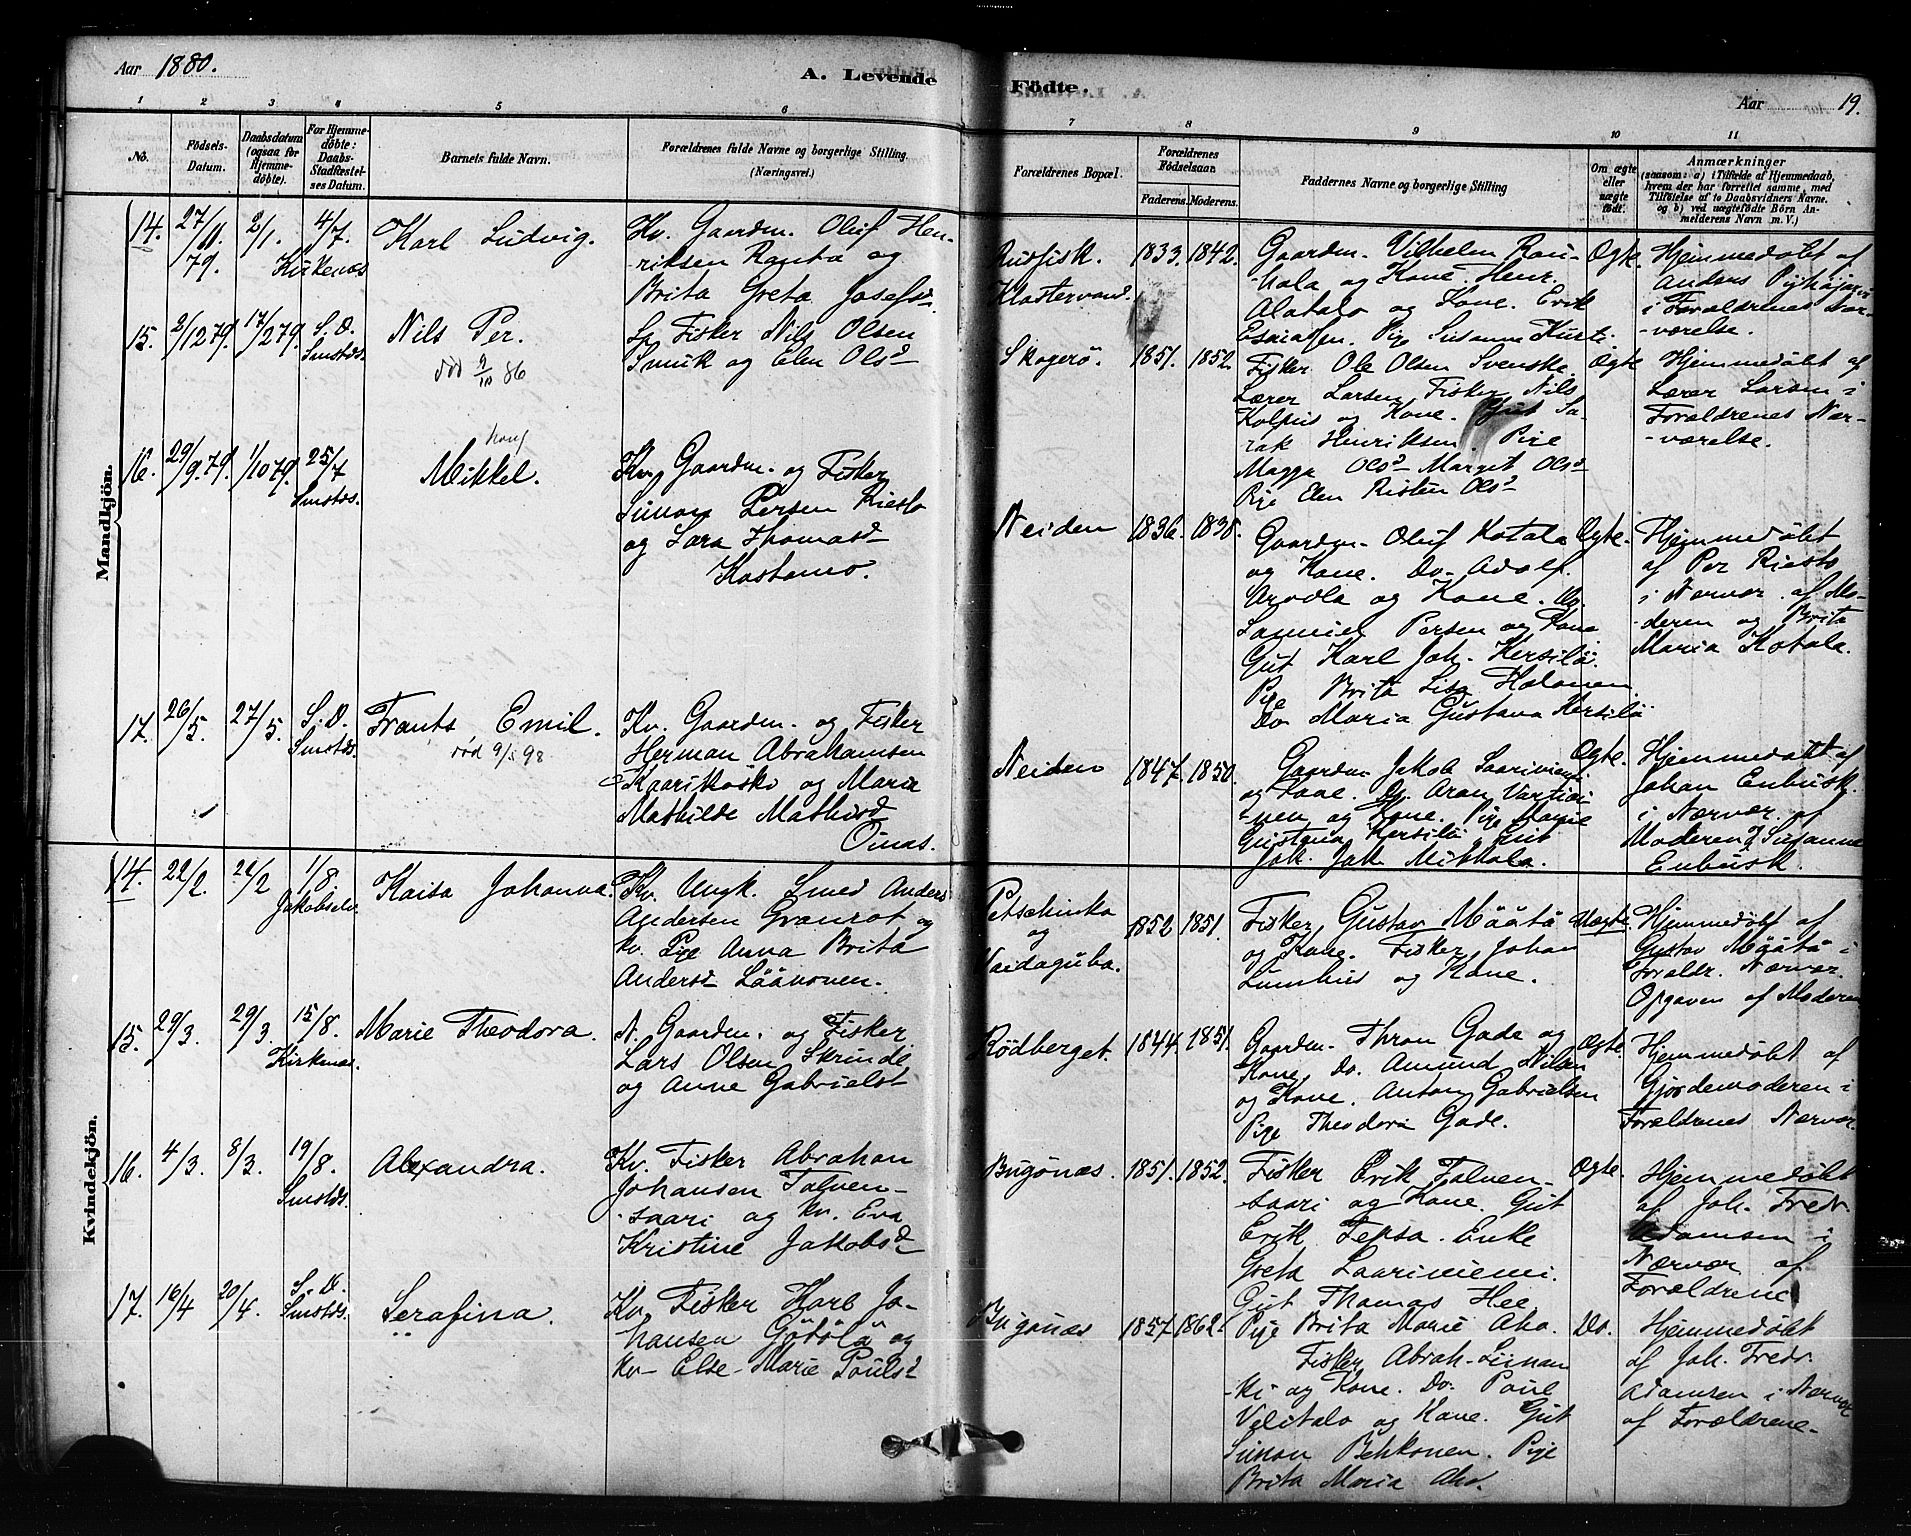 Aar 1880.
A. Levende
Födte.
Aar
19.
1 2 3 4 5 6 7 8 9 10 11
No.
Födsels-
Datum.
Daabsdatum
(ogsaa for
Hjemme-
döbte).
For Hjemme-
döbte:
Daabs-
Stadfæstel-
ses Datum.
Barnets fulde Navn.
Forældrenes fulde Navne og borgerlige Stilling
(Næringsvei.)
Forældrenes Bopæl.
Forældrenes
Födselsaar
Faderens. Moderens.
Faddernes Navne og borgerlige Stilling
Om ægte
eller
uægte
födt.
Anmærkninger
(saasom: a) i Tilfælde af Hjemmedaab,
hvem der har forrettet samme, med
Tilföielse af to Daabsvidners Navne.
og b) ved uægtefödte Börn An-
melderens Navn m. V.)
Mandkjön.
14.
27/11.
79.
2/1.
4/7.
Kirkenæs
Karl Ludvig.
Kv. Gaardm. Oluf Hen-
-riksen Ranta og
Brita Greta Josefsd
Klostervand.
1833. 1842.
Gaardm. Vilhelm Rau-
hala og Kone. Henr.
Alatalo og Kone. Erik
Esaiassen. Pige Susanna Kursti.
Ægte.
Hjemmedöbt af
Anders Pyhäjärvi
i Forældrenes Nær-
værelse.
15.
2/12 79.
17/2 79.
S. D.
Smstds.
Nils Per.
död 9/10 86
Lp. Fisker Nils Olsen
Smuk og Elen Olsd
Skogerö.
1851. 1852.
Fisker Ole Olsen Svenske.
Lærer Larsen. Fisker Nils
Kolpus og Kone. Gut Sa-
rak Henriksen. Pige
Magga Olsd Marget Olsd
Pige Elen Risten Olsd
Ægte
Hjemmedöbt af
Lærer Larsen i
Forældrenes Nær-
-værelse.
16.
29/9.79.
1/10 79.
25/7
Smstds.
Mikkel.
Kv. Gaardm. og Fisker
Simon Persen Riesto
og Sara Thomasd
Kostamo.
Neiden
1836. 1838.
Gaardm. Oluf Kotala
og Kone. Do. Adolf
Arvola og Kone. Do.
Samuel Persen og Kone
Gut Karl Joh. Kersilö.
Pige Brita Lisa Halonen
Do Maria Gustava Kersilö
Ægte.
Hjemmedöbt
af Per Riesto
i Nærvær. af Mo-
-deren og Brita
Maria Kotala.
17.
26/5.
27/5.
S. D.
Smstds.
Frants Emil.
död 9/5 98
Kv. Gaardm. og Fisker
Herman Abrahamsen
Kaarikoski og Maria
Mathilde Mathisd
Oinas.
Neiden
1847. 1850.
Gaardm. Jakob Saariniemi
og Kone. Do. Aron Vartiai-
-nen og Kone. Pige Marie
Gustava Kersilö. Gut
Joh. Jak. Mikkola.
Ægte.
Hjemmedöbt af
Johan Enbusk.
i Nærvær. af
Moderen og Susanna
Enbusk.
Kvindekjön.
14.
22/2.
22/2
1/8.
Jakobselv.
Kaisa Johanna.
Kv. Ungk. Smed Anders
Andersen Granrot og
kv. Pige Anna Brita
Andersd Läävonen.
Petschinka
og
Vaidaguba.
1852 1851.
Fisker Gustav Määtä
og Kone. Fisker Johan
og Kone.
Uægte
Hjemmedöbt af
Gustav Määtä i
Forældr. Nærvær.
Opgaven af Moderen
15.
29/3.
29/3.
15/8.
Kirkenæs.
Marie Theodora.
N. Gaardm. og Fisker
Lars Olsen Skrinde
og Anne Gabrielsd
Rödberget.
1844. 1851.
Gaardm. Thron Gade og
Kone, Do. Amund Nilsen
og Kone. Anton Gabrielsen
Pige Theodora Gade.
Ægte.
Hjemmedöbt af
Gjordemoderen i
Forældrenes Nærvær.
16.
4/3.
8/3.
19/8.
Smstds.
Alexandra.
Kv. Fisker Abraham
Johansen Talven-
-saari og kv. Eva
Kristine Jakobsd
Bugönæs.
1851. 1852.
Fisker Erik Talven-
saari og Kone. Gut
Erik Tepsa. Enke
Greta Laariniemi.
Gut Thomas Hee
Pige Brita Marie Aho.
Ægte.
Hjemmedöbt
af Joh. Fredr.
Adamsen i
Nærvær af
Forældrene
17.
16/4
20/4.
S. D.
Smstds.
Serafina.
Kv. Fisker Karl Jo-
hansen Götölä og
kv. Else Marie Poulsd
Bugönæs
1857. 1862.
Fisker Abrah. Liinan
-ki og Kone. Do. Paul
Velitalo og Kone. Gut
Simon Pehkonen. Pige
Brita Maria Aho.
Do.
Hjemmedöbt
af Joh. Fredr.
Adamsen i Nærvær
af Forældrene.